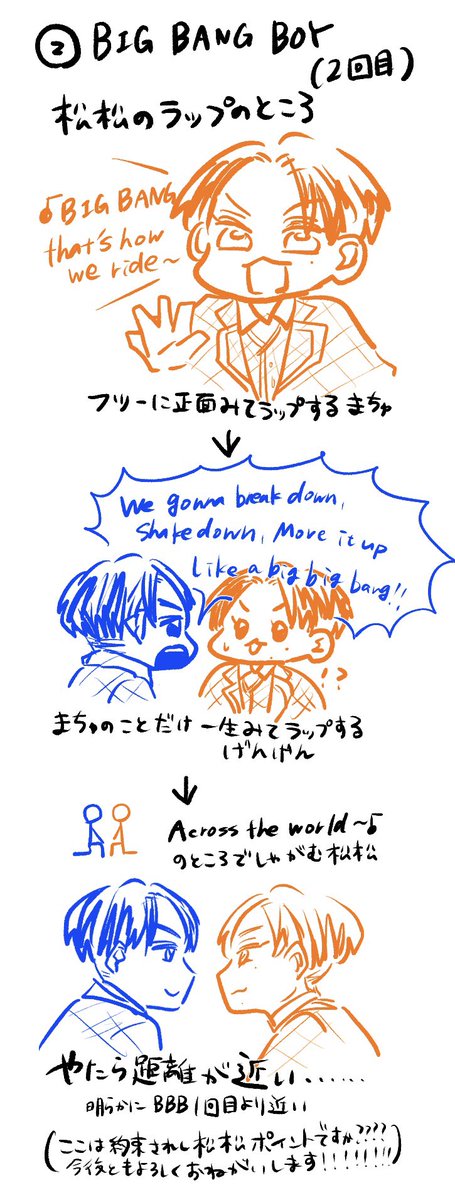 ② BIG BANG BOY
(2回目)
松松のラップのところ
♪BIG BANG
that's how
we ride〜
フツーに正面みてラップするまちゅ
↓
We gonna break down,
Shake down, Move it up
Like a big big bang!!
!?
まちゅのことだけ一生みてラップする
げんげん
↓
Across the world〜♪
のところでしゃがむ松松
やたら距離が近い……
明らかにBBB1回目より近い
(ここは約束されし松松ポイントですか????
今後ともよろしくおねがいします!!!!!!!!)